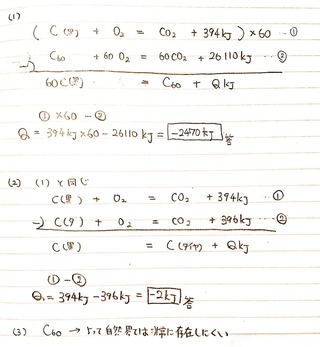 (1)
( C(黒) + O₂ = CO₂ + 394kJ ) ×60 …①
-) C₆₀ + 60 O₂ = 60CO₂ + 26110kJ …②
60C(黒) = C₆₀ + QkJ
① ×60 - ②
Q = 394kJ ×60 - 26110kJ = -2470kJ 答
(2) (1) と同じ
C(黒) + O₂ = CO₂ + 394kJ …①
-) C(ダ) + O₂ = CO₂ + 396kJ …②
C(黒) = C(ダイヤ) + QkJ
① - ②
Q = 394kJ - 396kJ = -2kJ 答
(3) C₆₀ → よって自然界では非常に存在しにくい